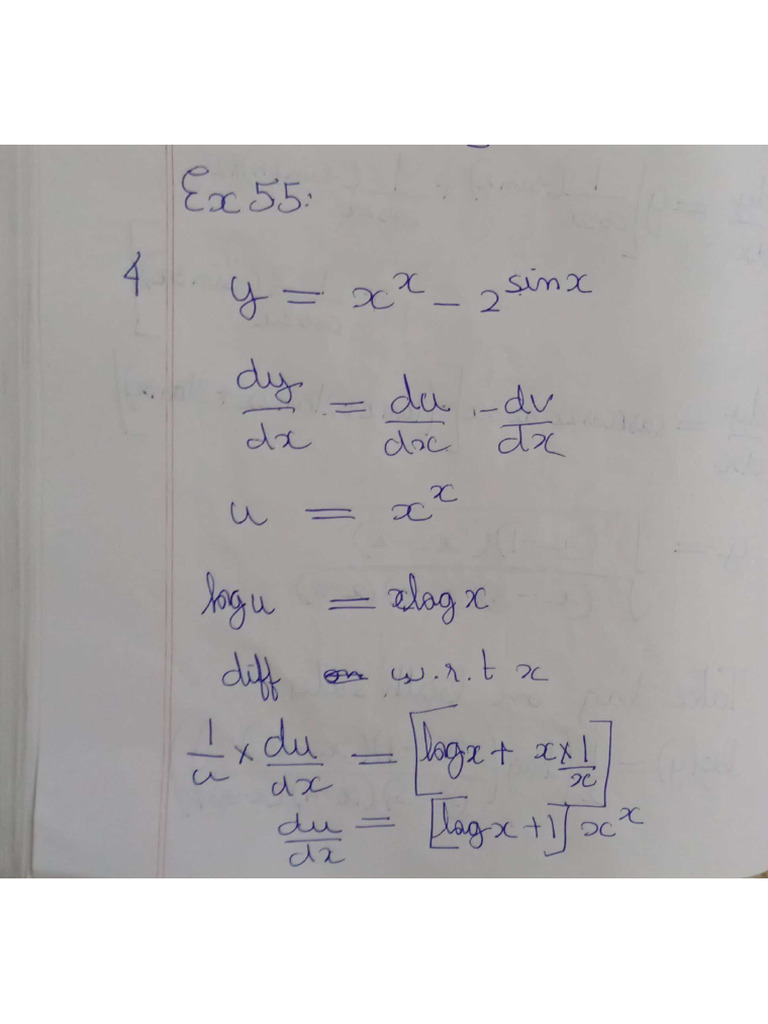 Ex 55:
4 y = x^x - 2^sinx
dy/dx = du/dx - dv/dx
u = x^x
logu = xlogx
diff w.r.t x
1/u × du/dx = [logx + x × 1/x]
du/dx = [logx + 1] x^x